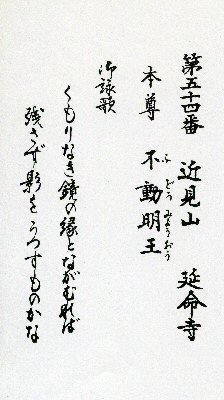 第五十四番 近見山 延命寺
本尊 不動明王
ふどうみょうおう
御詠歌
くもりなき鏡の縁とながむれば
残さず影をうつすものかな